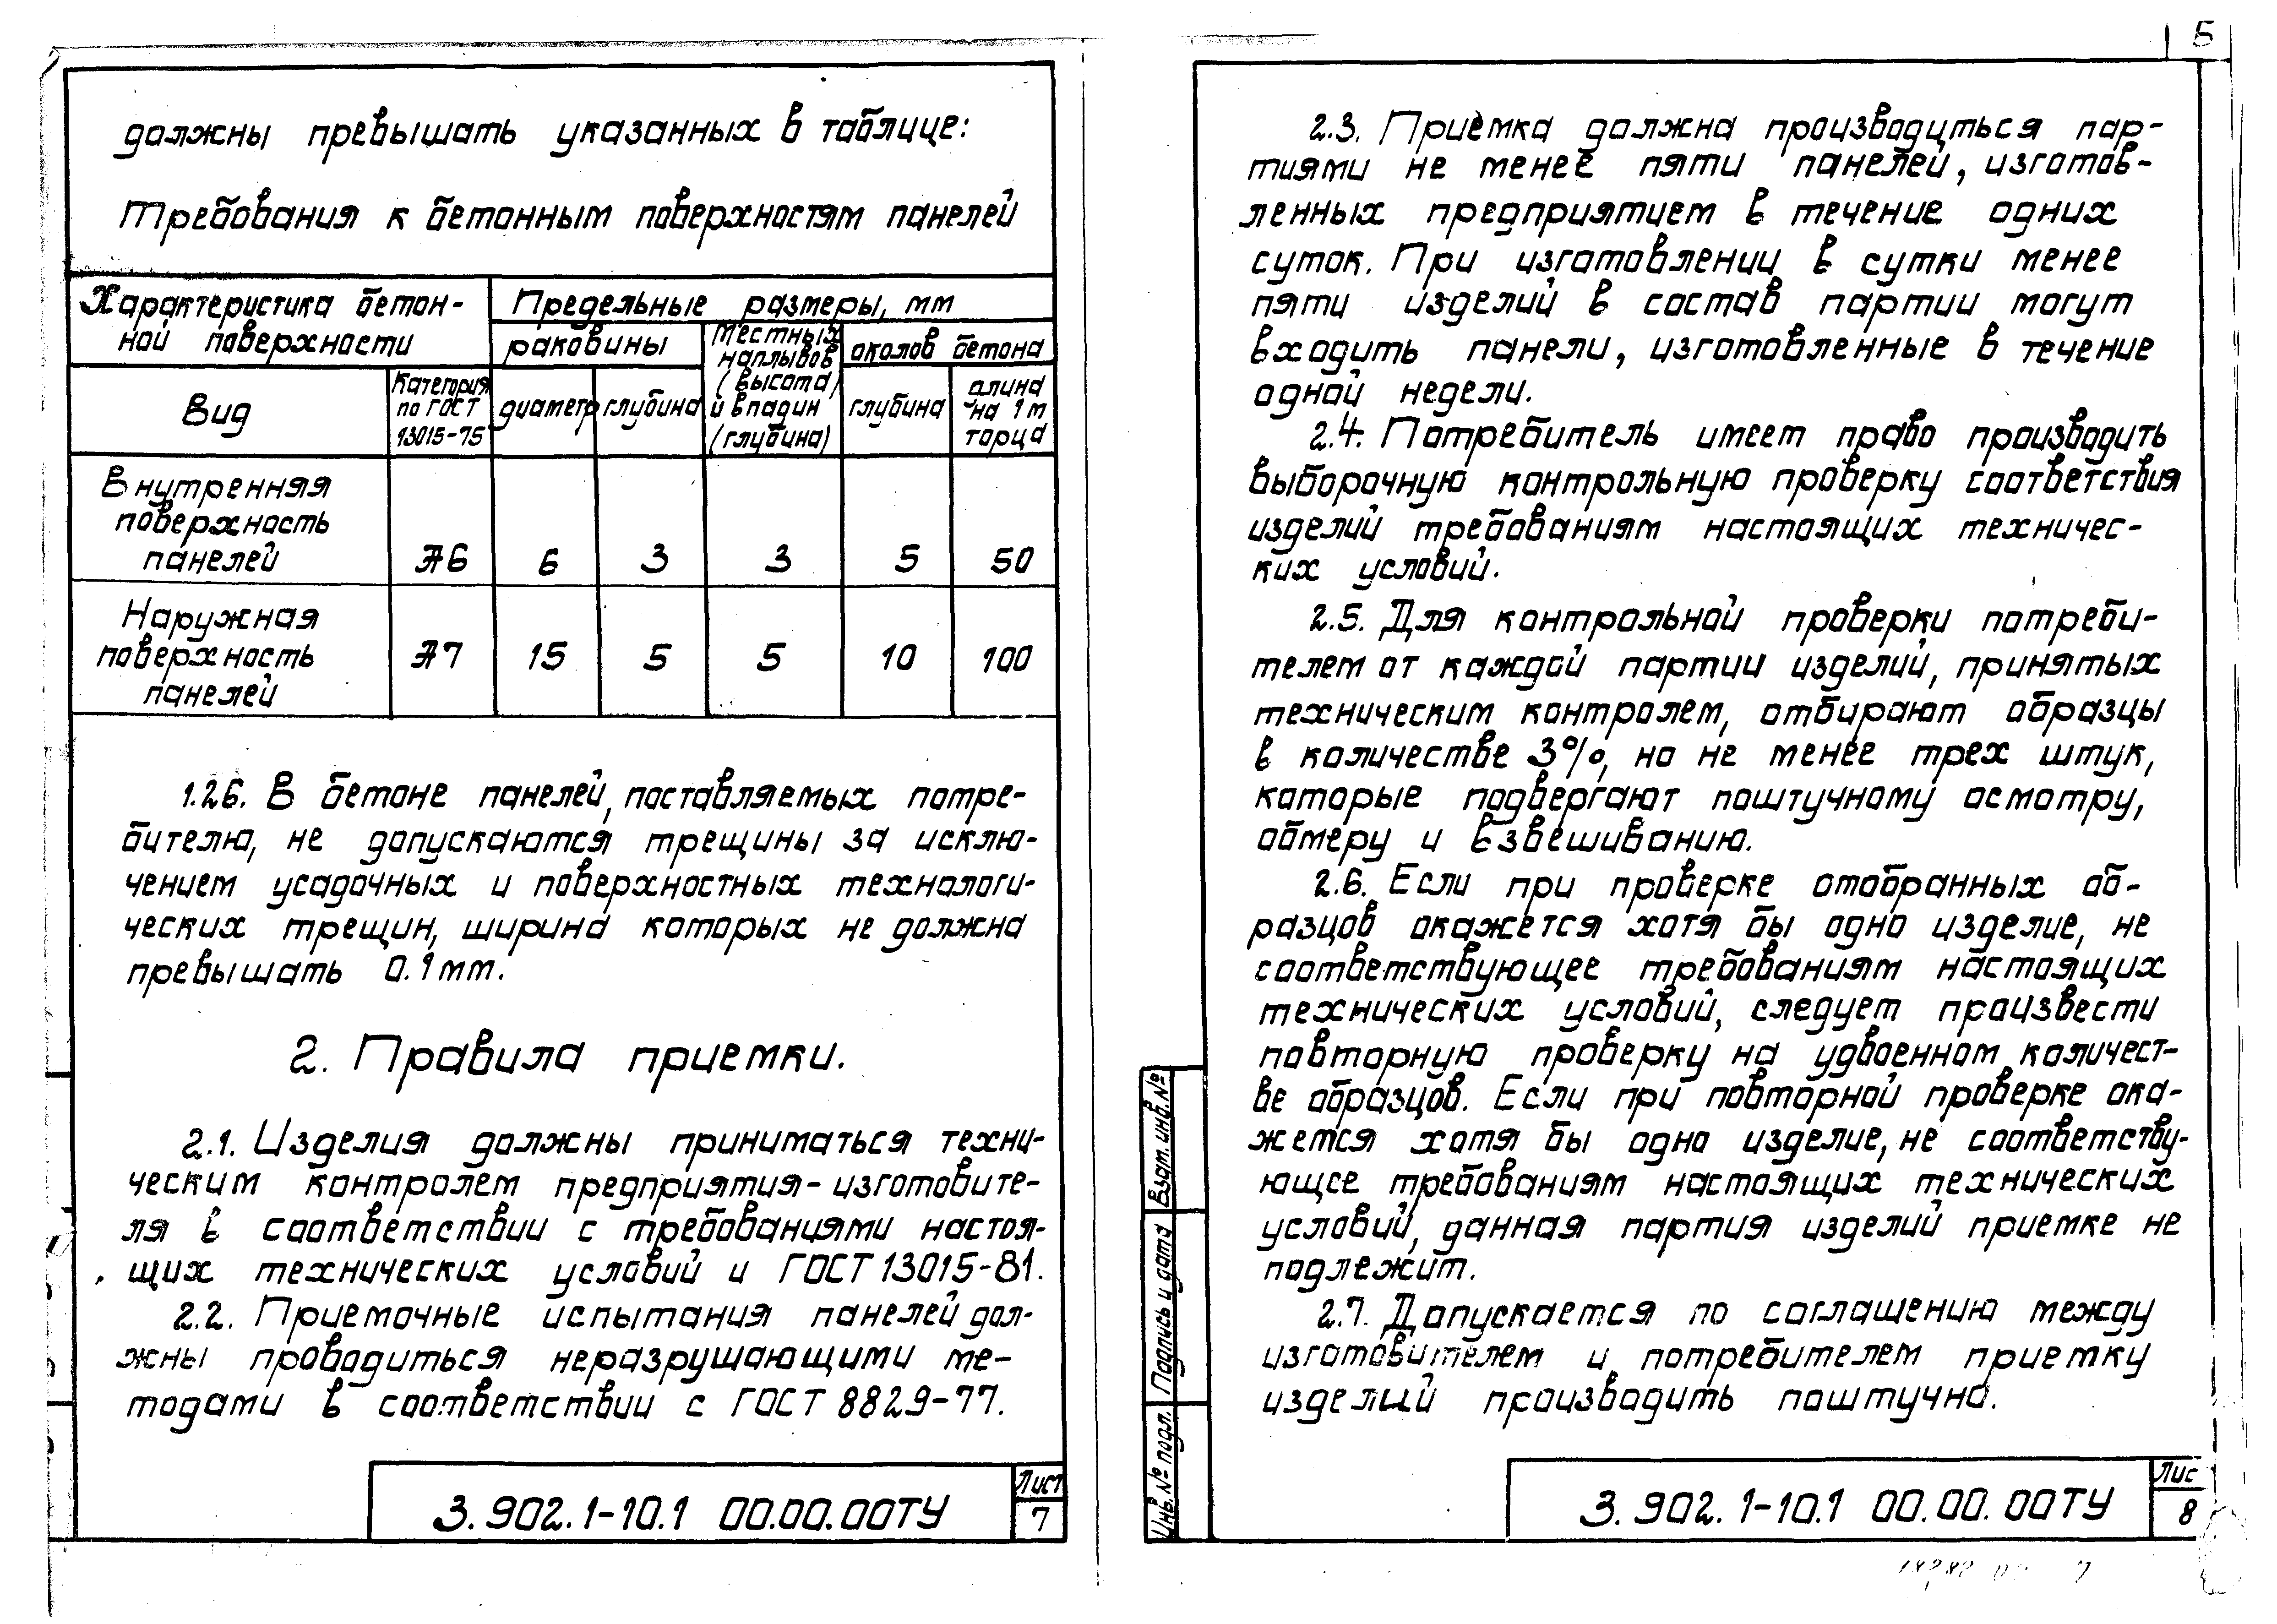 5
должны превышать указанных в таблице:
Требования к бетонным поверхностям панелей
Характеристика бетон-
ной поверхности
Предельные размеры, мм
раковины
местных
наплывов
(высота)
и впадин
(глубина)
околов бетона
Вид
Категория
по ГОСТ
13015-75
диаметр
глубина
глубина
длина
на 1м
торца
Внутренняя
поверхность
панелей
А6 6 3 3 5 50
Наружная
поверхность
панелей
А7 15 5 5 10 100
1.2.6. В бетоне панелей, поставляемых потре-
бителю, не допускаются трещины за исклю-
чением усадочных и поверхностных технологи-
ческих трещин, ширина которых не должна
превышать 0.1мм.
2. Правила приемки.
2.1. Изделия должны приниматься техни-
ческим контролем предприятия-изготовите-
ля в соответствии с требованиями настоя-
щих технических условий и ГОСТ 13015-81.
2.2. Приемочные испытания панелей дол-
жны проводиться неразрушающими ме-
тодами в соответствии с ГОСТ 8829-77.
3.902.1-10.1 00.00.00ТУ
Лист
7
2.3. Приемка должна производиться пар-
тиями не менее пяти панелей, изготов-
ленных предприятием в течение одних
суток. При изготовлении в сутки менее
пяти изделий в состав партии могут
входить панели, изготовленные в течение
одной недели.
2.4. Потребитель имеет право производить
выборочную контрольную проверку соответствия
изделий требованиям настоящих техничес-
ких условий.
2.5. Для контрольной проверки потреби-
телем от каждой партии изделий, принятых
техническим контролем, отбирают образцы
в количестве 3%, но не менее трех штук,
которые подвергают поштучному осмотру,
обмеру и взвешиванию.
2.6. Если при проверке отобранных об-
разцов окажется хотя бы одно изделие, не
соответствующее требованиям настоящих
технических условий, следует произвести
повторную проверку на удвоенном количест-
ве образцов. Если при повторной проверке ока-
жется хотя бы одно изделие, не соответству-
ющее требованиям настоящих технических
условий, данная партия изделий приемке не
подлежит.
2.7. Допускается по соглашению между
изготовителем и потребителем приемку
изделий производить поштучно.
Взам. инв. №
Подпись и дата
Инв. № подл.
3.902.1-10.1 00.00.00ТУ
Лис
8